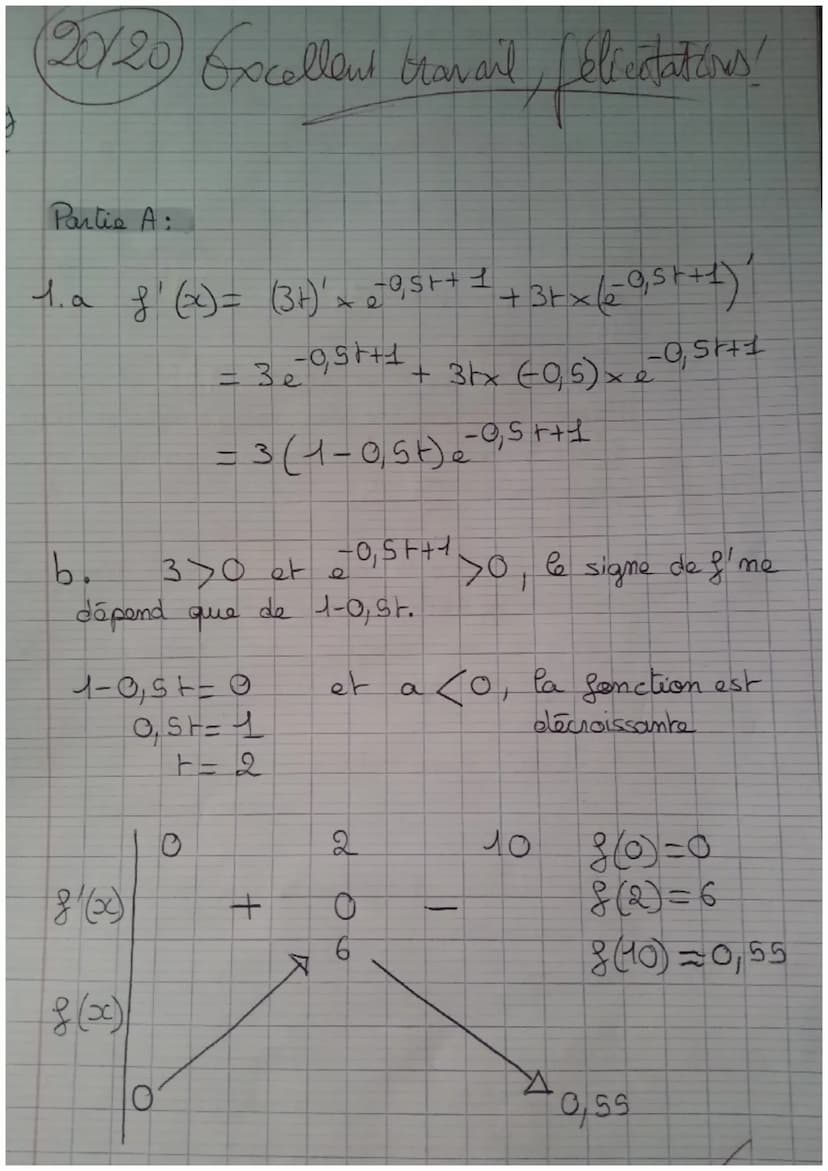 20/20 Excellent travail, félicitations!
Partie A:
1.a f'(x) = (3t)' × e^-0,5t+1 + 3t × (e^-0,5t+1)'
= 3e^-0,5t+1 + 3t × (-0,5) × e^-0,5t+1
= 3(1-0,5t)e^-0,5t+1
b. 3>0 et e^-0,5t+1 >0, le signe de f' ne
dépend que de 1-0,5t.
1-0,5t = 0 et a<0, la fonction est
0,5t = 1 décroissante
t = 2
0 2 10 f(0)=0
f'(x) + 0 - f(2)=6
6 f(10)≈0,55
f(x)
0 0,55